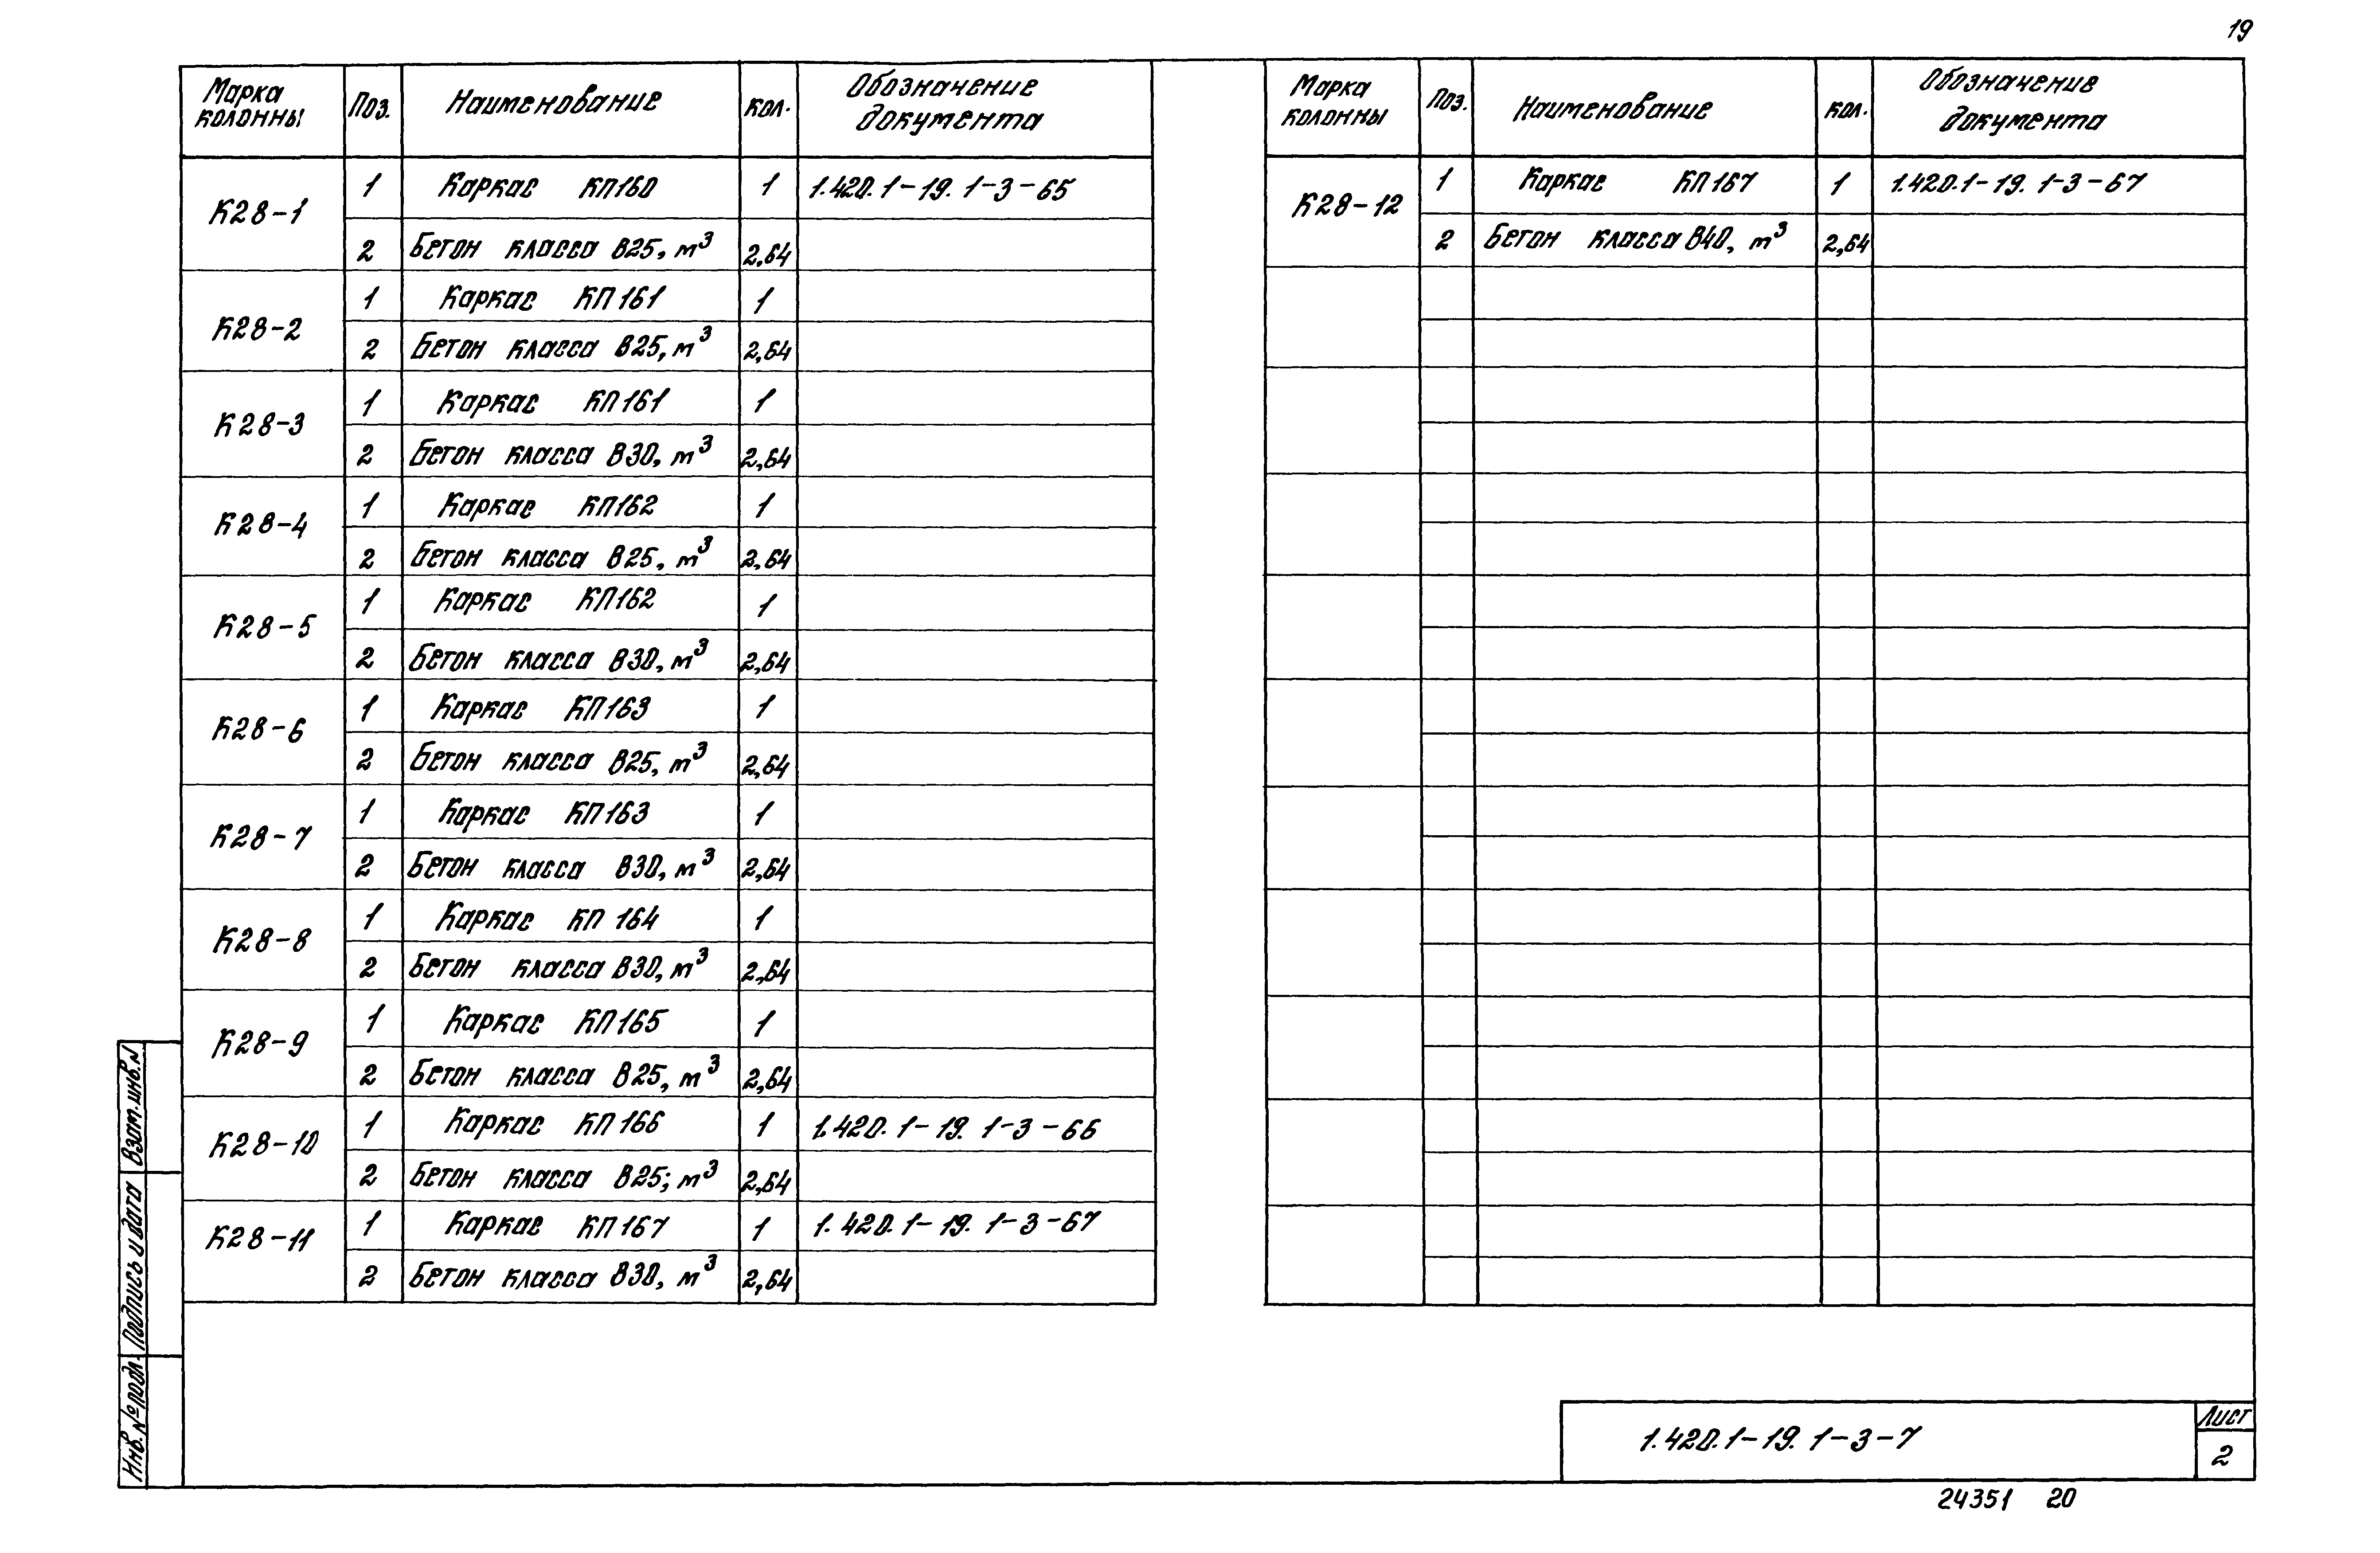 19
Марка колонны Поз. Наименование кол. Обозначение документа
К28-1 1 Каркас КП160 1 1.420.1-19.1-3-65
2 Бетон класса В25, м³ 2,64
К28-2 1 Каркас КП161 1
2 Бетон класса В25, м³ 2,64
К28-3 1 Каркас КП161 1
2 Бетон класса В30, м³ 2,64
К28-4 1 Каркас КП162 1
2 Бетон класса В25, м³ 2,64
К28-5 1 Каркас КП162 1
2 Бетон класса В30, м³ 2,64
К28-6 1 Каркас КП163 1
2 Бетон класса В25, м³ 2,64
К28-7 1 Каркас КП163 1
2 Бетон класса В30, м³ 2,64
К28-8 1 Каркас КП 164 1
2 Бетон класса В30, м³ 2,64
К28-9 1 Каркас КП165 1
2 Бетон класса В25, м³ 2,64
К28-10 1 Каркас КП166 1 1.420.1-19.1-3-66
2 Бетон класса В25; м³ 2,64
К28-11 1 Каркас КП167 1 1.420.1-19.1-3-67
2 Бетон класса В30, м³ 2,64
Марка колонны Поз. Наименование кол. Обозначение документа
К28-12 1 Каркас КП167 1 1.420.1-19.1-3-67
2 Бетон класса В40, м³ 2,64
Инв. № подл. Подпись и дата Взам. инв. N
1.420.1-19.1-3-7
Лист
2
24351 20